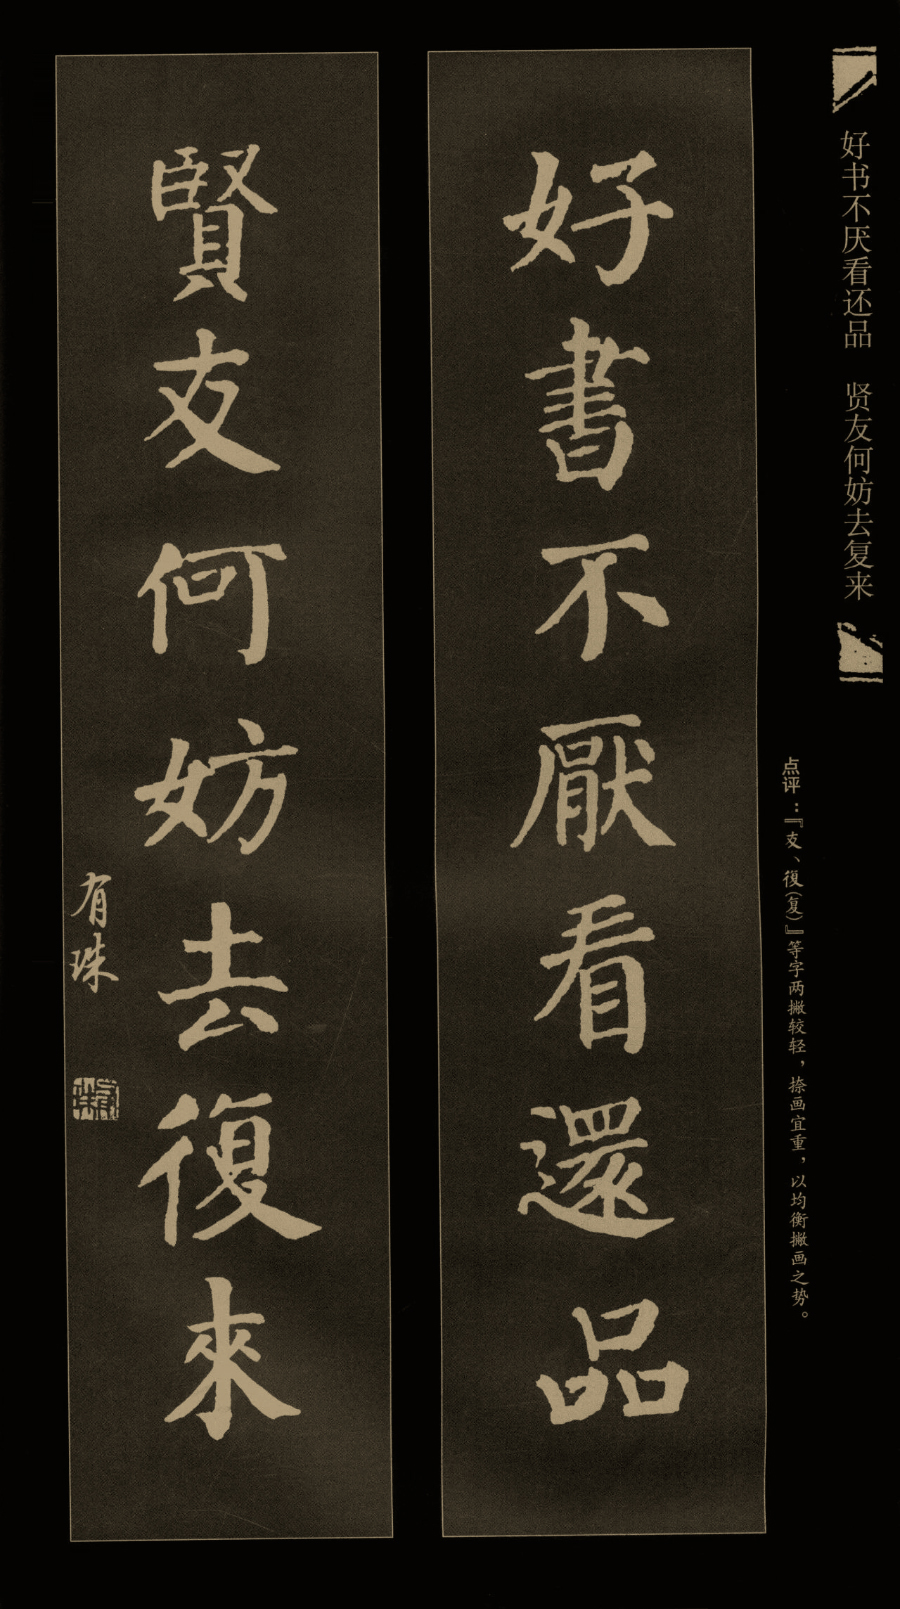 好书不厌看还品 贤友何妨去复来
点评：『支、復（复）』等字两撇较轻，捺画宜重，以均衡撇画之势。
好書不厭看還品
賢友何妨去復來
有珠